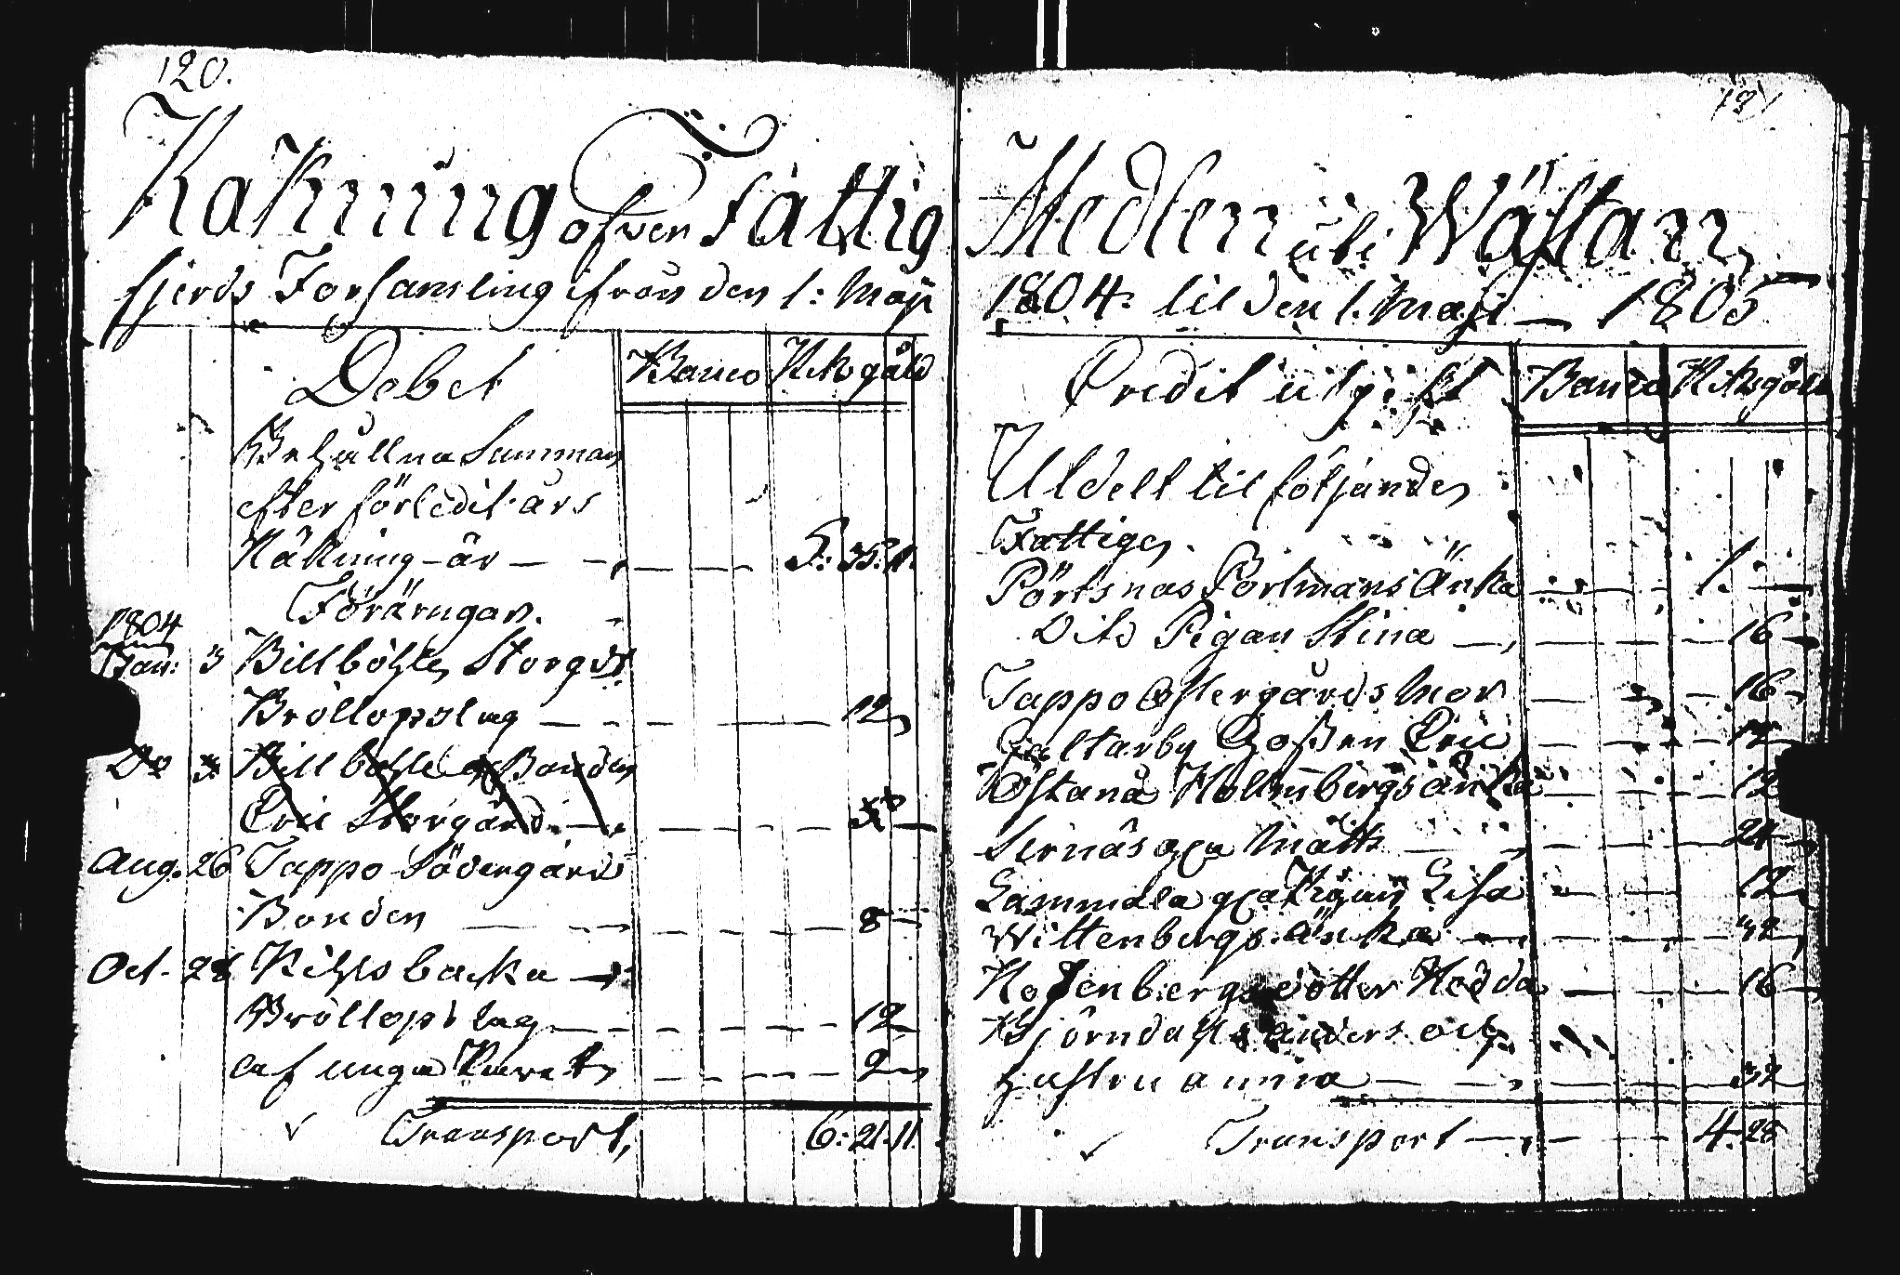 120.
Räkning öfver Fattig
fjerds Församling ifrån den 1: Maji
Debet Banco Riksgäld
Behållna Summan
efter förledit års
Räkning är 5: 35. 11.
Föräringar.
1804
Jan: 3 Billböhle Storgds
Bröllopslag 12
Do 3 Billböhle Bonden
Eric Storgård
Aug. 26 Tappo Södergårds
Bonden 8
Oct. 28 Kihlsbacka
Bröllopslag 12
af unga 2
Transport, 6: 21. 11.
181
Medlen uti Wåstan
1804. til den 1. Maji 1805
Credit utgift Banco Riksgäld
Utdelt til följande
Fattige
Pörtsnäs Portmans Änka 1.
Dito Pigan Stina 16
Tappo Östergårds Mor 16
Galtarby Eric 12
Östanå Holmbergs änka 12
Sirnäs gla Matts 24
Gammala gla Pigan Lisa 12
Wittenbergs Änka 32
Rosenbergs dotter Hedda 16
Björndahls Anders och
hustru anna 32
Transport 4. 28